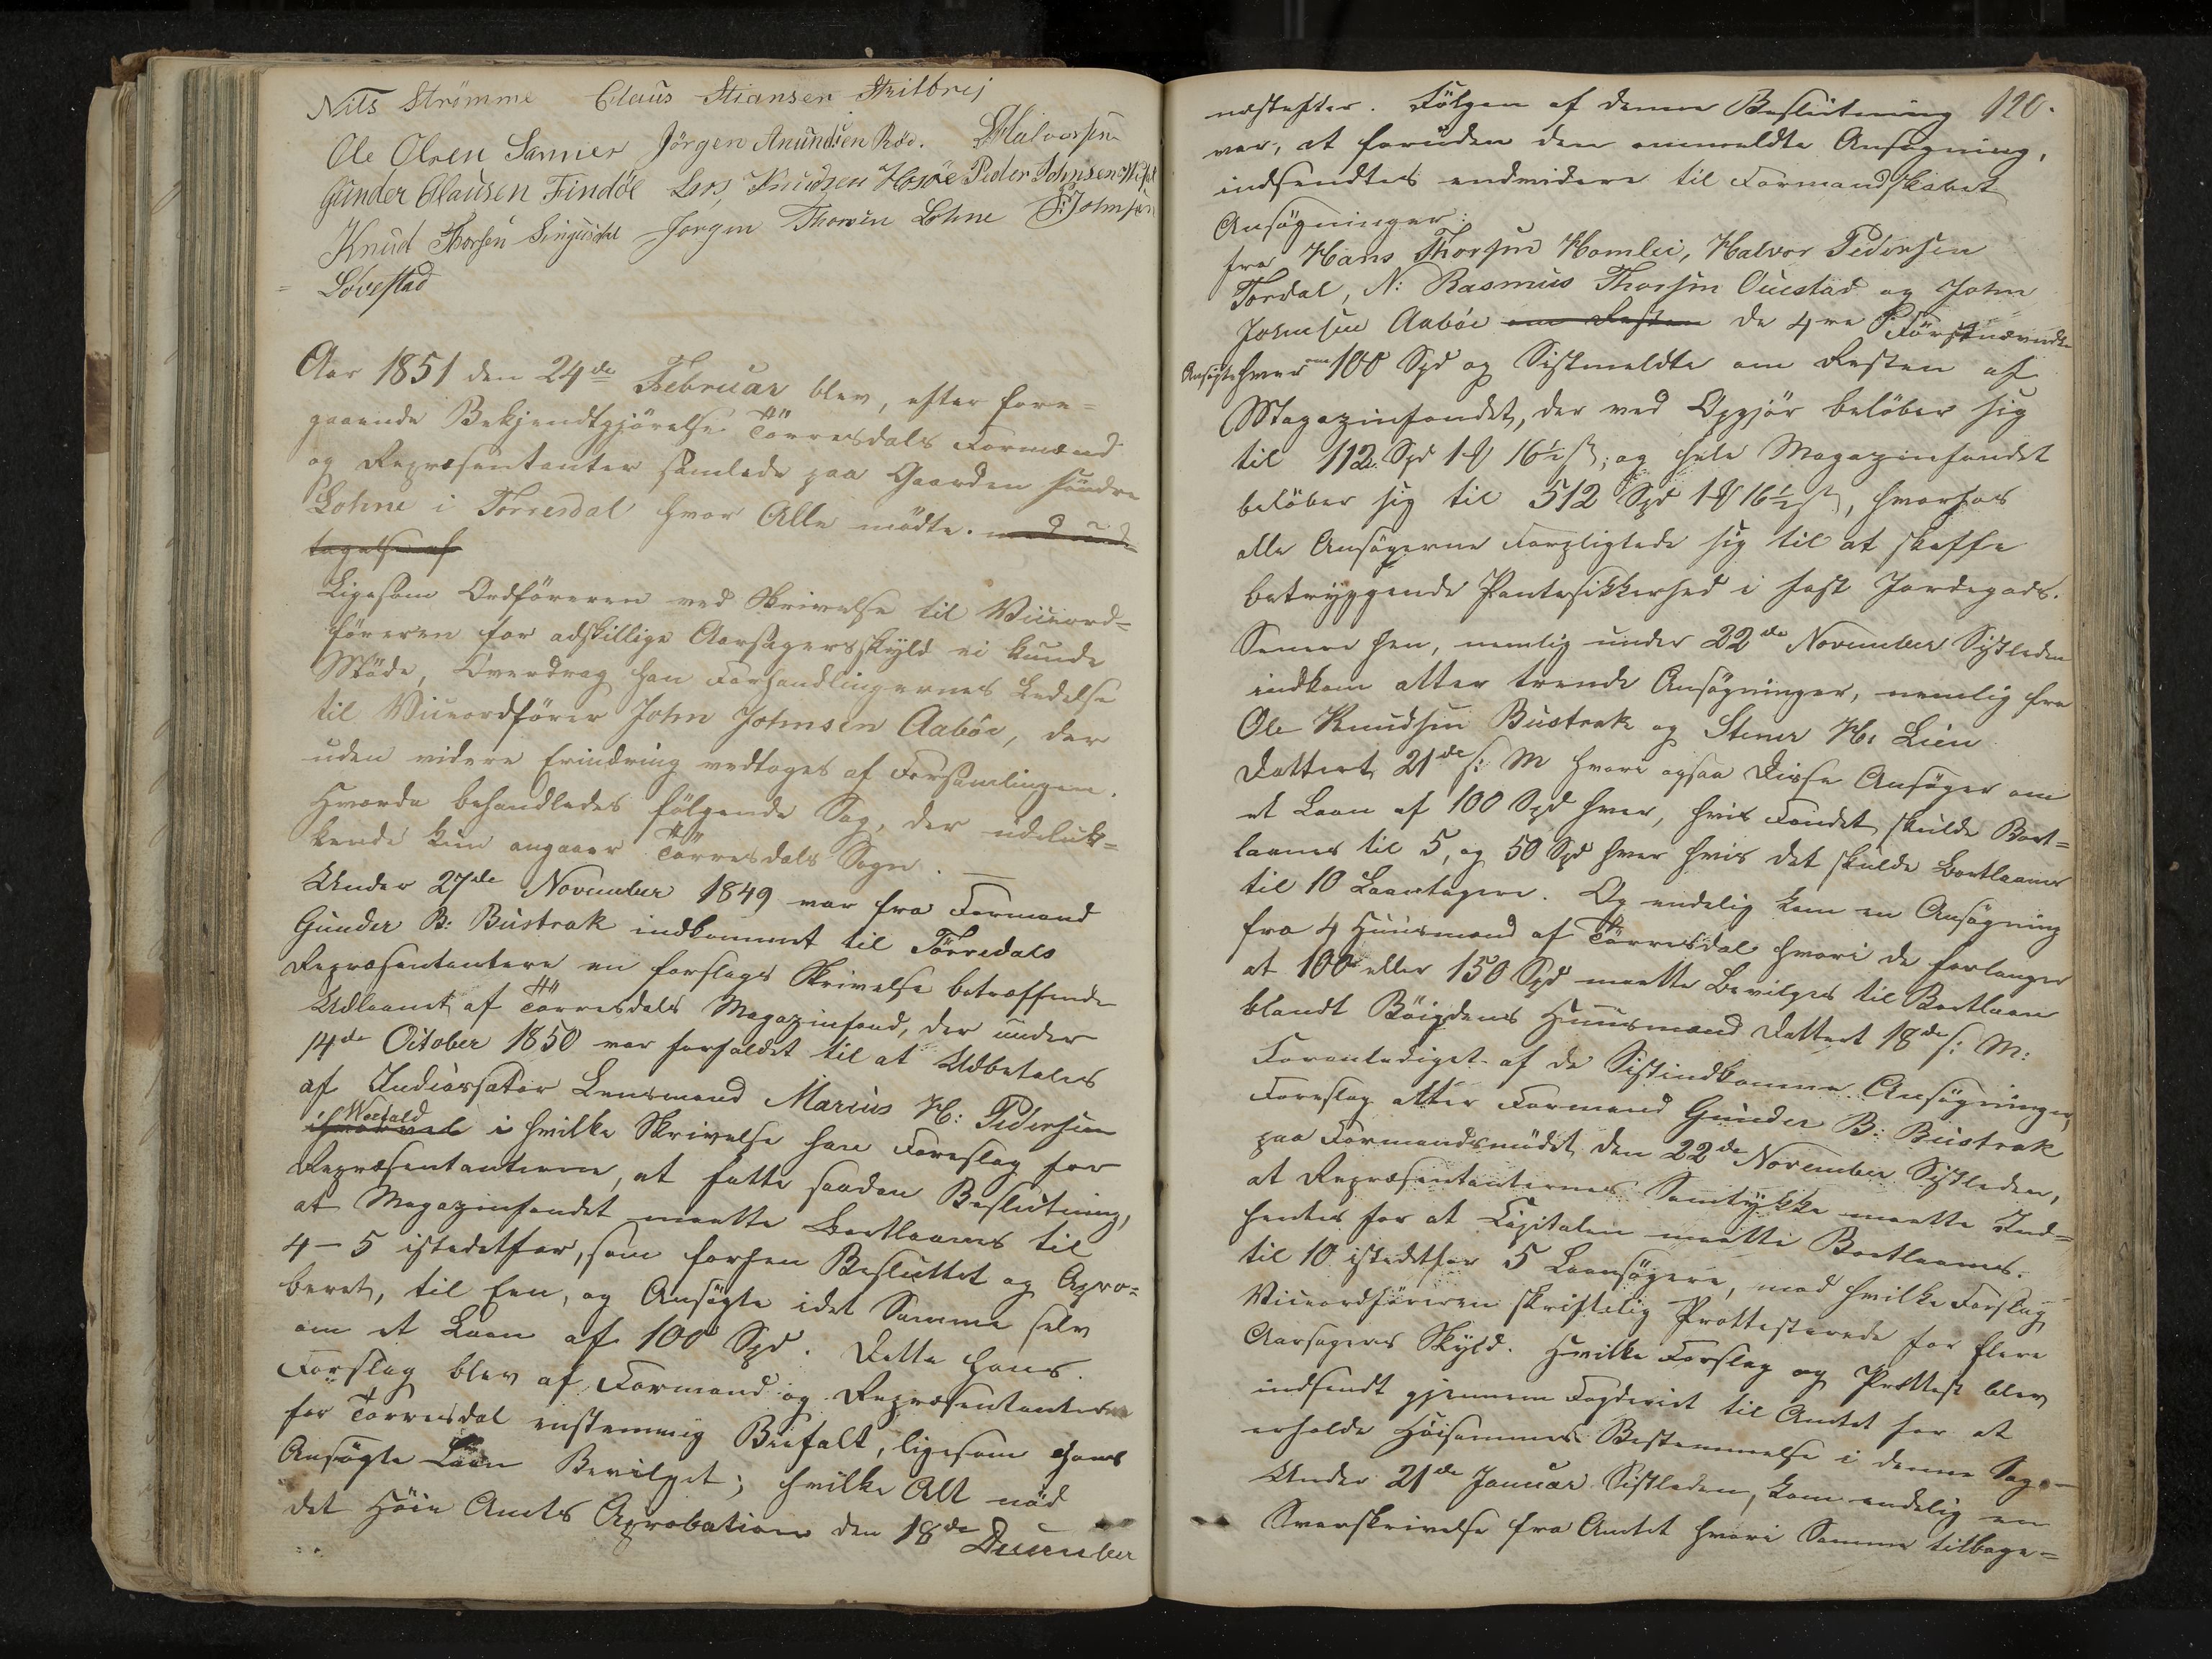 Nils Strømme Claus Stiansen Stritbrej
Ole Olsen Sanner Jörgen Anundsen Röd. Halvorsen
Gunder Clausen Findöe Lars Knudsen Hosöe Peder Johnsen
Knud Thorsen Jorgen Thorsen Lohne Johnsen
Lövestad
Aar 1851 den 24de Februar blev, efter fore=
gaaende Bekjendtgjörelse Törresdals Formænd
og Repræsentanter samlede paa Gaarden söndre
Lohne i Törresdal hvor Alle mödte. med und=
tagelse af
Ligesom Ordföreren ved Skrivelse til Viceord=
föreren for adskillige Aarsagersskyld ei kunde
Möde, Overdrog han Forhandlingernes Ledelse
til Viceordförer John Johnsen Aaböe, der
uden videre Erindring vedtoges af Forsamlingen.
Hvorda behandledes fölgende Sag, der udeluk=
kende kun angaaer Törresdals Sogn.
Under 27de November 1849 var fra Formand
Gunder B: Bustrak indkommet til Törredals
Repræsentantere en forslags Skrivelse betræffende
Udlaanet af Törresdals Magazinfond, der under
14de October 1850 var forholdet til at Udbetales
af Indcassator Lensmand Marius H: Pedersen
Wærvald i hvilke Skrivelse han Foreslog for
Repræsentanterne, at fatte saadan Beslutning,
at Magazinfondet maatte Bortlaanes til
4-5 istedetfor, som forhen Besluttet og Apro=
beret, til Een, og Ansögte idet Samme selv
om et Laan af 100 Spd. Dette hans
Forslag blev af Formænd og Repræsentanterne
for Törresdal enstemmig Biefalt, ligesom hans
Ansögte Laan Bevilget; hvilke Alt nöd
det Höie Amts Aprobation den 18de December
næstefter. Fölgen af denne Beslutning 120.
var, at foruden den ommeldte Ansögning,
indsendtes endvidere til Formandskabet
Ansögninger:
fra Hans Thorsen Homlei, Halvor Pedersen
Tordal, N: Rasmus Thorsen Ouestad og John
Johnsen Aaböe om Resten de 4re Förstnævndte
Ansögte hver om 100 Spd og Sistmeldte om Resten af
Magazinfondet, der ved Opgjör belöber sig
til 112 Spd 1 ₰ 16½ ß; og hele Magazinfondet
belöber sig til 512 Spd 1 ₰ 16½ ß, hvorhos
alle Ansögerne Forpligtede sig til at skaffe
betryggende Pantesikkerhed i fast Jordegods.
Senere hen, nemlig under 22de November Sistleden
indkom atter trende Ansögninger, nemlig fra
Ole Knudsen Bustrak og Stener H. Lien
Dattert 21de s: M hvori ogsaa Disse Ansöger om
et Laan af 100 Spd hver, hvis Fondet skulde Bort=
laanes til 5, og 50 Spd hver hvis det skulde bortlaanes
til 10 Laantagere. Og endelig kom en Ansögning
fra 4 Huusmænd af Törresdal hvori de forlanger
at 100 eller 150 Spd maatte Bevilges til Bortlaan
blandt Böigdens Huusmænd Dattert 18de s: M:
Foranlediget af de Sistindkomne Ansögninger,
Foreslog atter Formand Gunder B: Bustrak
paa Formandsmödet den 22de November Sistleden,
at Repræsentanternes Samtykke maatte Ind=
hentes for at Capitalen maatte Bortlaanes
til 10 istedetfor 5 Laansögere, mod hvilke Forslag
Viceordföreren skriftelig Prottesterede for flere
Aarsagers Skyld. Hvilke Forslag og Prottest blev
indsendt gjennem Fogderiet til Amtet for at
erholde Höisammes Bestemmelse i denne Sag.
Under 21de Januar Sistleden, kom endelig en
Svarskrivelse fra Amtet hvori Samme tilbage=